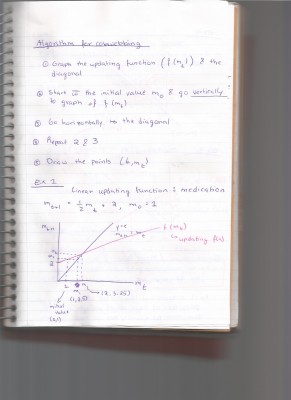 Algorithm for cobwebbing
① Graph the updating function (f(mt)) & the
diagonal
② Start @ the initial value m0 & go vertically
to graph of f(mt)
③ Go horizontally to the diagonal
④ Repeat 2 & 3
⑤ Draw the points (t, mt)
Ex 1
Linear updating function : medication
mt+1 = 1/2 mt + 2, m0 = 1
mt+1
y=x
mt+1 = mt
f(mt)
updating f(x)
m1
2
1
m1
mt
(1, 2.5)
(2, 3.25)
initial
value